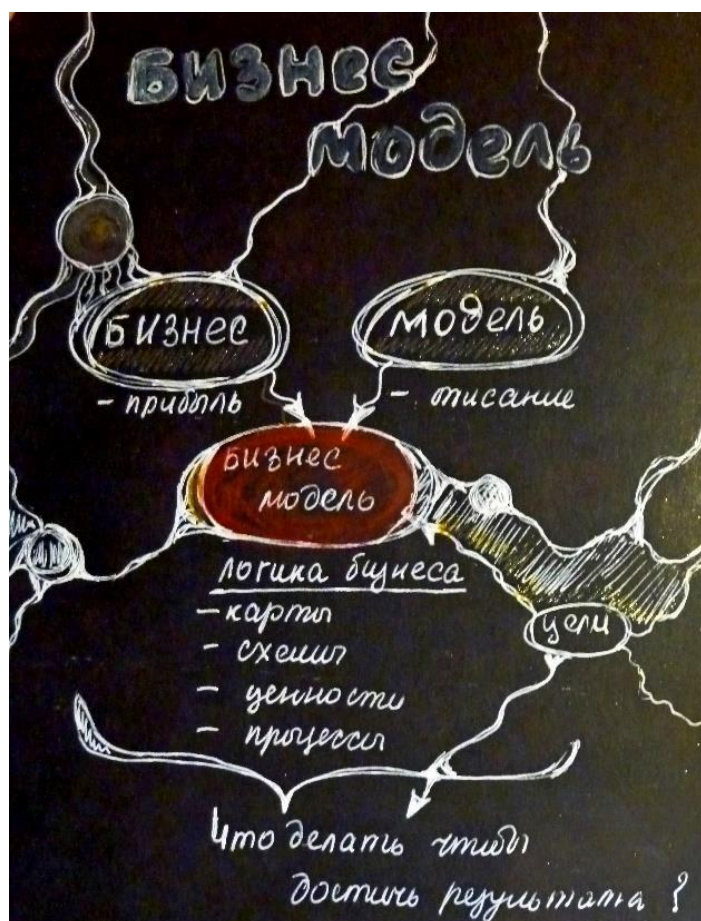 Бизнес
модель
БИЗНЕС
МОДЕЛЬ
- прибыль
- описание
БИЗНЕС
МОДЕЛЬ
логика бизнеса
- карты
- схемы
- ценности
- процессы
цели
Что делать чтобы
достичь результата ?